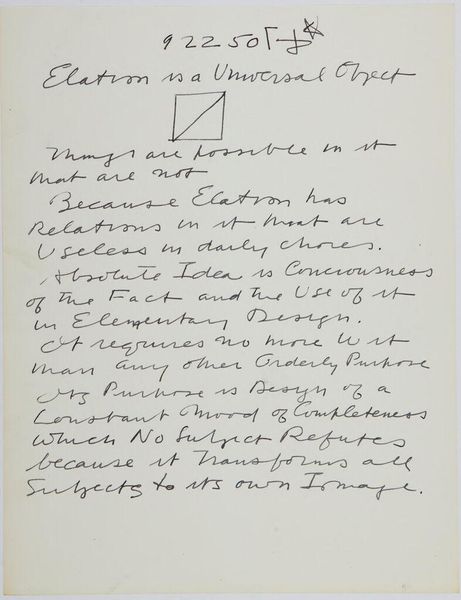 922501
Elation is a Universal Object
Things are possible in it
that are not
Because Elation has
Relations in it that are
Useless in daily chores.
Absolute Idea is Conciousness
of the Fact and the Use of it
in Elementary Design.
It requires no more Wit
than any other Orderly Purpose
Its Purpose is Design of a
Constant Mood of Completeness
which No Subject Refutes
because it Transforms all
Subjects to its own Image.